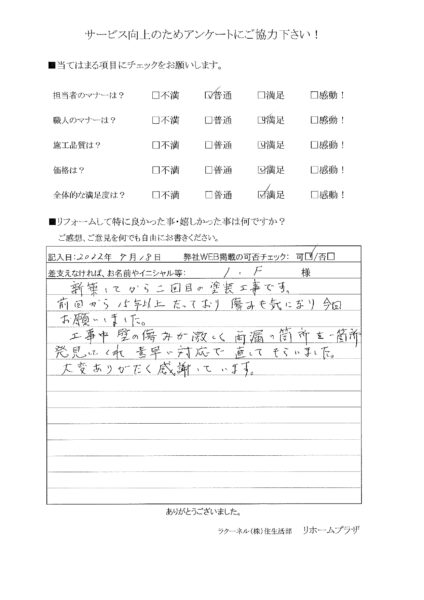 サービス向上のためアンケートにご協力下さい！
■当てはまる項目にチェックをお願いします。
担当者のマナーは？ □不満 ☑普通 □満足 □感動！
職人のマナーは？ □不満 □普通 ☑満足 □感動！
施工品質は？ □不満 □普通 ☑満足 □感動！
価格は？ □不満 □普通 ☑満足 □感動！
全体的な満足度は？ □不満 □普通 ☑満足 □感動！
■リフォームして特に良かった事・嬉しかった事は何ですか？
ご感想、ご意見を何でも自由にお書きください。
記入日：2022年 9月18日 弊社WEB掲載の可否チェック： 可☑/否□
差支えなければ、お名前やイニシャル等： F 様
新築してから二回目の塗装工事です。
前回から15年以上たっており傷みも気になり今回
お願いしました。
工事中壁の傷みが激しく雨漏の箇所を一箇所
発見してくれ素早い対応で直してもらいました。
大変ありがたく感謝しています。
ありがとうございました。
ラクーネル（株）住生活部 リホームプラザ